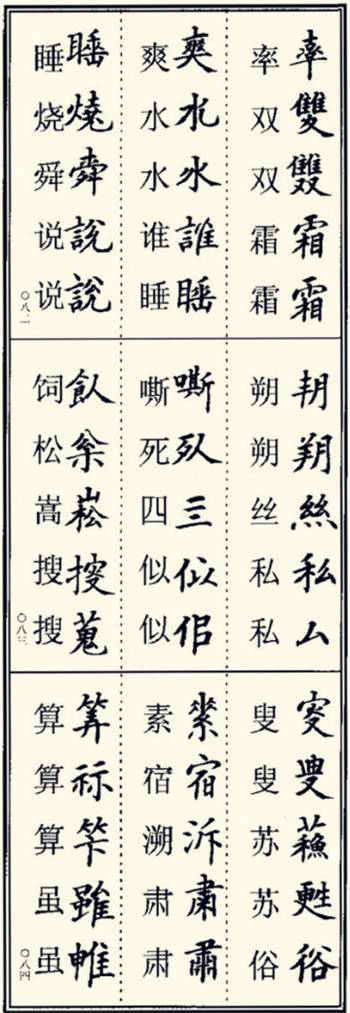 率雙䨥霜霜
率双双霜霜
爽水水誰睡
爽水水谁睡
睡燒舜說說
睡烧舜说说
〇八二
朔絲私厶
朔朔丝私私
嘶死三似佀
嘶死四似似
飤枀崧搜蒐
饲松嵩搜搜
〇八三
叟蘇甦俗
叟叟苏苏俗
素宿泝肅肅
素宿溯肃肃
筭祘笇雖
算算算虽虽
〇八四